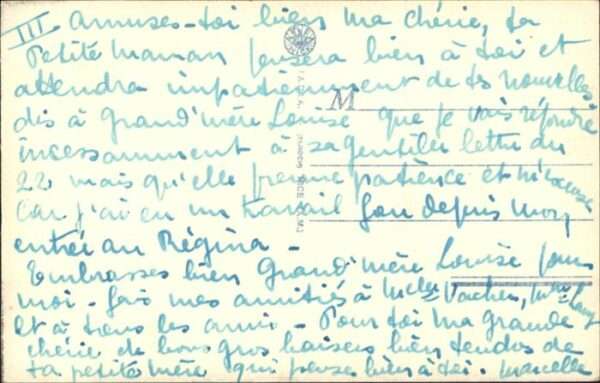 III Amuses-toi bien ma chérie, ta
Petite Maman pensera bien à toi et
attendra impatiemment de tes nouvelles
dis à Grand'mère Louise que je vais répondre
incessamment à sa gentille lettre du
22 mais qu'elle prenne patience et m'excuse
car j'ai eu un travail fou depuis mon
entrée au Régina -
Embrasses bien Grand'mère Louise pour
moi - fais mes amitiés à Melles Vacher, Mme
et à tous les amis - Pour toi ma grande
chérie de bons gros baisers bien tendres de
ta petite mère qui pense bien à toi. Marcelle
M